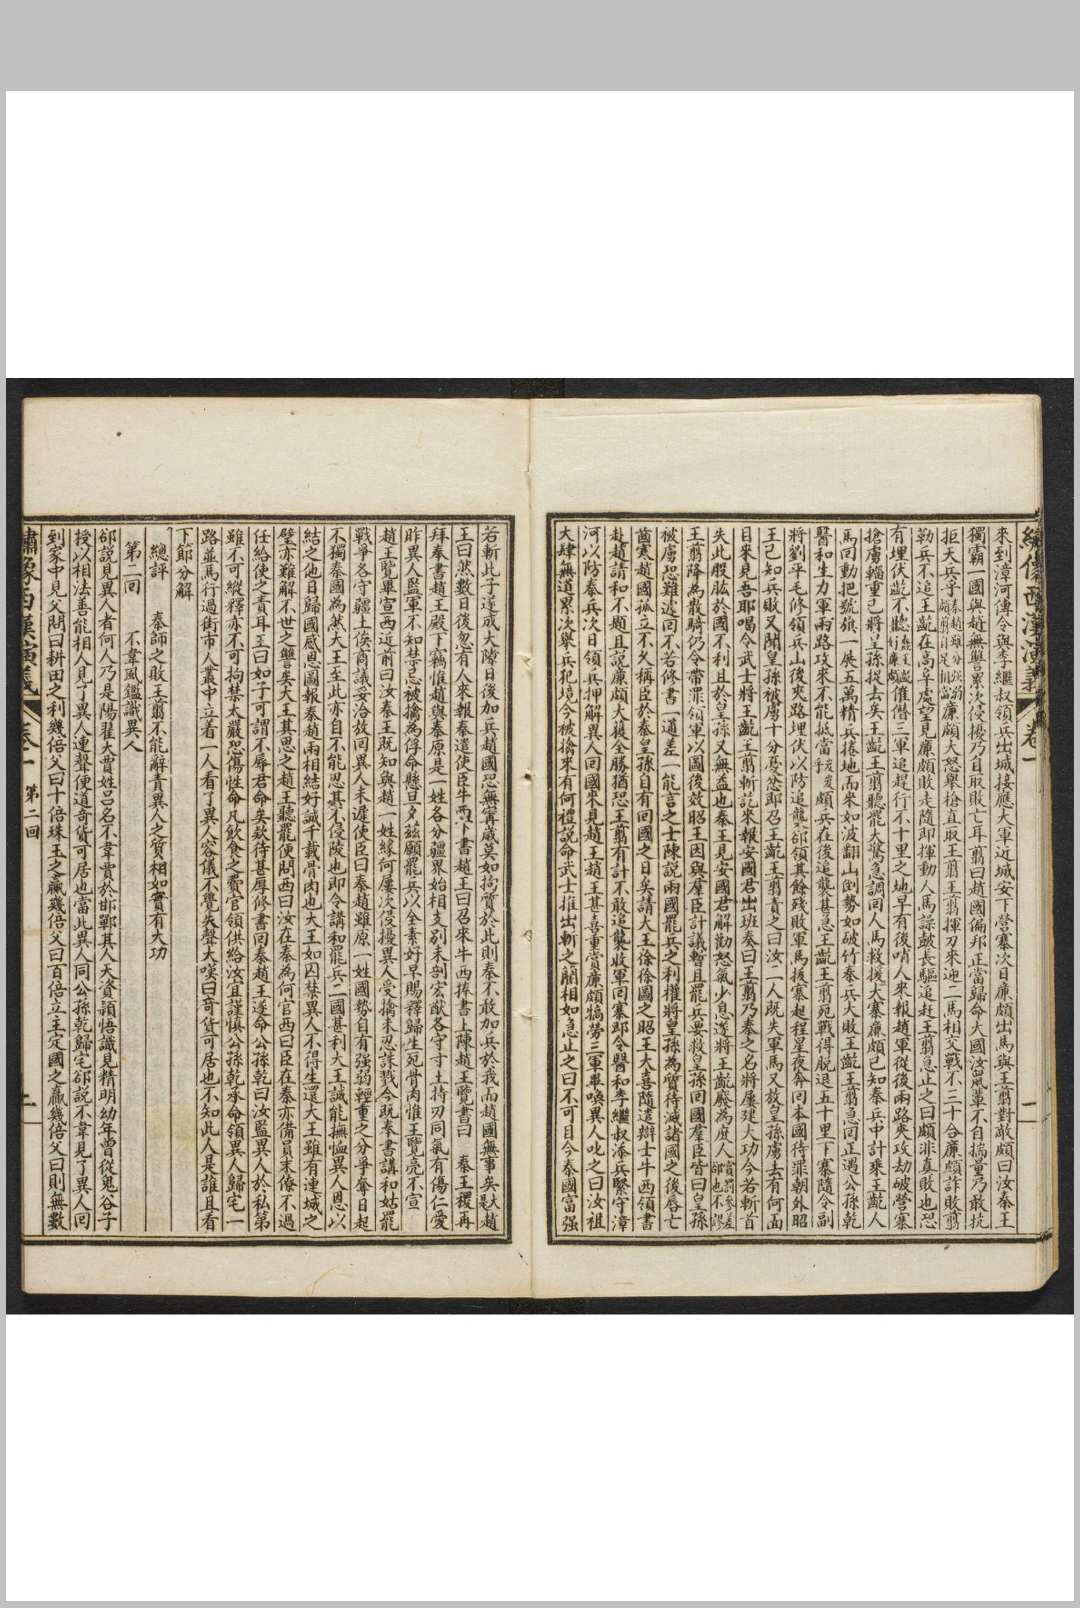 繡像西漢演義 卷一
來到漳河傳令與李繼叔領兵出城接應大軍近城安下營寨次日廉頗出馬與王翦對敵頗曰汝秦王
獨霸一國與趙無讐累次侵擾乃自取敗亡耳翦曰趙國偏邦正當歸命大國汝鼠輩不自揣量乃敢抗
拒天兵乎 廉頗大怒舉槍直取王翦王翦揮刀來迎二馬相交戰不三十合廉頗詐敗翦
勒兵不追王齕在高阜處望見廉頗敗走隨即揮動人馬譟鼓長驅追赶王翦急止之曰頗非真敗也恐
有埋伏齕不聽 催儹三軍追趕行不十里之地早有後哨人來報趙軍從後兩路夾攻劫破營寨
搶虜輜重已將皇孫捉去矣王齕王翦聽罷大驚急調回人馬救援大寨廉頗已知秦兵中計乘王齕人
馬回動把號旗一展五萬精兵捲地而來如波翻山倒勢如破竹秦兵大敗王齕王翦急回正遇公孫乾
醫和生力軍兩路攻來不能抵當 頗兵在後追襲甚急王齕王翦死戰得脫退五十里下寨隨令副
將劉平毛修領兵山後夾路埋伏以防追襲 卻領其餘殘敗軍馬援寨起程星夜奔回本國待罪朝外昭
王已知兵敗又聞皇孫被虜十分憂忿即召王齕王翦責之曰汝二人既失軍馬又放皇孫虜去有何面
目來見吾耶喝令武士將王齕王翦斬訖來報安國君出班奏曰王翦乃秦之名將屢建大功今若斬首
失此股肱於國不利且於皇孫又無益也秦王見安國君解勸怒氣少息遂將王齕廢為庶人 賞罰參差卻也不謬
王翦降為散騎仍令帶罪領軍以圖後效昭王因與羣臣計議暫且罷兵要救皇孫回國羣臣皆曰皇孫
被虜恐難遽回不若修書一通差一能言之士陳說兩國罷兵之利權將皇孫為質待滅諸國之後唇亡
齒寒趙國孤立不久稱臣於秦皇孫自有回國之日矣請大王徐徐圖之昭王大喜隨遣辯士牛西領書
赴趙請和不題且說廉頗大獲全勝猶恐王翦有計不敢追襲收軍回寨即令醫和李繼叔添兵緊守漳
河以防秦兵次日領兵押解異人回國來見趙王趙王甚喜重賞廉頗犒勞三軍畢喚異人叱之曰汝祖
大肆無道累次舉兵犯境今被擒來有何禮說命武士推出斬之藺相如急止之曰不可目今秦國富强
若斬此子遂成大隙日後加兵趙國恐無寧歲莫如搞質於此則秦不敢加兵於我而趙國無事矣 趙
王曰然數日後忽有人來報秦遣使臣牛西下書趙王曰召來牛西捧書上陳趙王覽書曰 秦王稷再
拜奉書趙王殿下竊惟趙與秦原是一姓各分疆界始相支別未剖宏猷各守寸土持刃同氣有傷仁愛
昨異人監軍不知禁忌被擒為俘命懸旦夕茲願罷兵以全素好早賜釋歸生死骨肉惟王覽亮不宣
趙王覽畢宣西近前曰汝秦王既知與趙一姓緣何屢次侵擾異人受擒未忍誅戮今既奉書講和姑罷
戰爭各守疆土俟商議妥洽放回異人未遲使臣曰秦趙雖原一姓國勢自有强弱輕重之分爭奪日起
不獨秦國為然大王至此亦自不能忍其不侵陵也即今講和罷兵二國甚利大王誠能撫恤異人恩以
結之他日歸國感恩圖報秦趙兩相結好誠千載骨肉也大王如囚禁異人不得生還大王雖有連城之
璧亦難解不世之讐矣大王其思之趙王聽罷便問西曰汝在秦為何官西曰臣在秦亦備員末僚不過
任給使之責耳王曰如子可謂不辱君命矣欵待甚厚修書回秦趙王遂命公孫乾曰汝監異人於私第
雖不可縱釋亦不可拘禁太嚴恐傷性命凡飲食之費官領供給汝宜謹慎公孫乾承命領異人歸宅一
路並馬行過街市人叢中立着一人看了異人容儀不覺失聲大嘆曰奇貨可居也不知此人是誰且看
下節分解
總評 秦師之敗王翦不能辭責異人之質相如實有大功
第二回 不韋風鑑識異人
卻說見異人者何人乃是陽翟大賈姓呂名不韋賈於邯鄲其人大資頴悟識見精明幼年曾從鬼谷子
授以相法善能相人見了異人連聲便道奇貨可居也當此異人同公孫乾歸宅卻說不韋見了異人回
到家中見父問曰耕田之利幾倍父曰十倍珠玉之贏幾倍父曰百倍立主定國之贏幾倍父曰則無數
繡像西漢演義 卷一 第二回 二